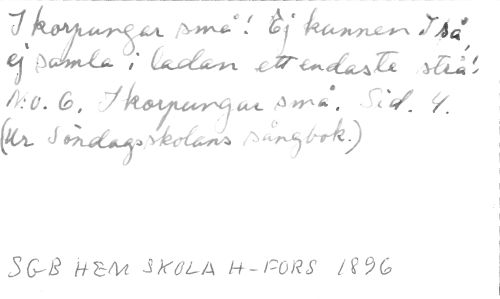 I korpungar små! Ej kunnen I så,
ej samla i ladan ett endaste strå!
N:o. 6. I korpungar små. Sid. 4.
(Ur Söndagsskolans sångbok.)
SGB HEM SKOLA H-FORS 1896